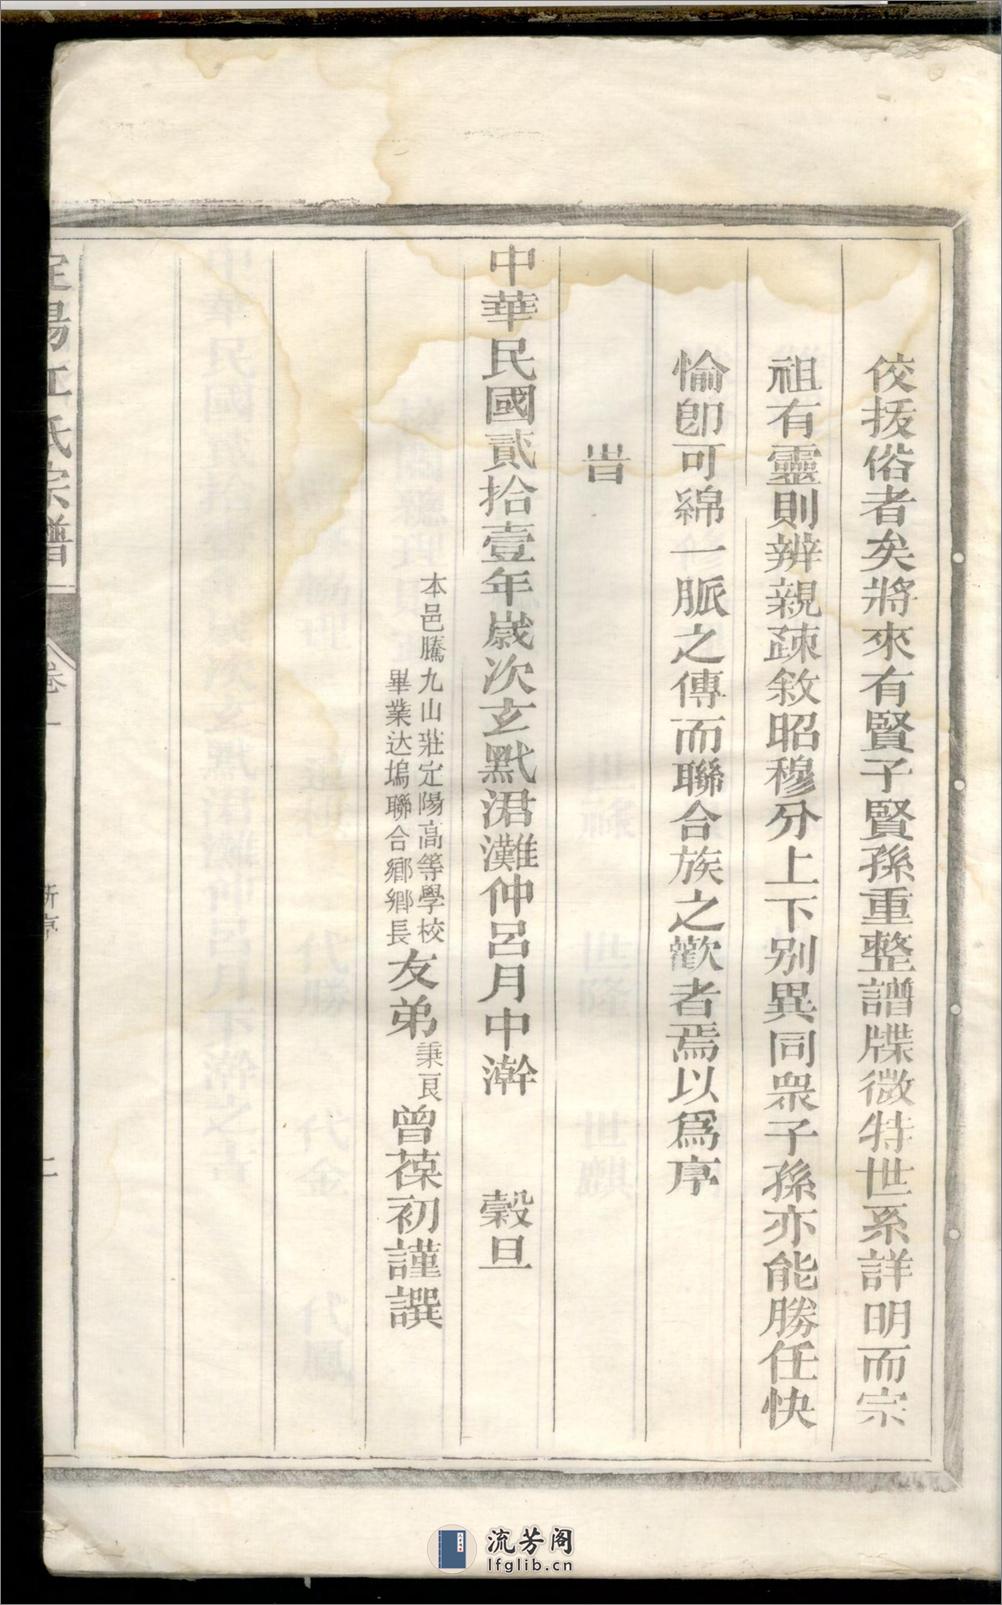 佼拔俗者矣將來有賢子賢孫重整譜牒微特世系詳明而宗
祖有靈則辨親疎敘昭穆分上下別異同衆子孫亦能勝任快
愉卽可綿一脈之傳而聯合族之歡者焉以爲序
旹
中華民國貳拾壹年歲次玄黓涒灘仲呂月中澣　穀旦
本邑騰九山莊定陽高等學校
畢業达塢聯合鄉鄉長
友弟秉良曾葆初謹譔
定陽江氏宗譜　卷一　新序　二
流芳阁
lfglib.cn